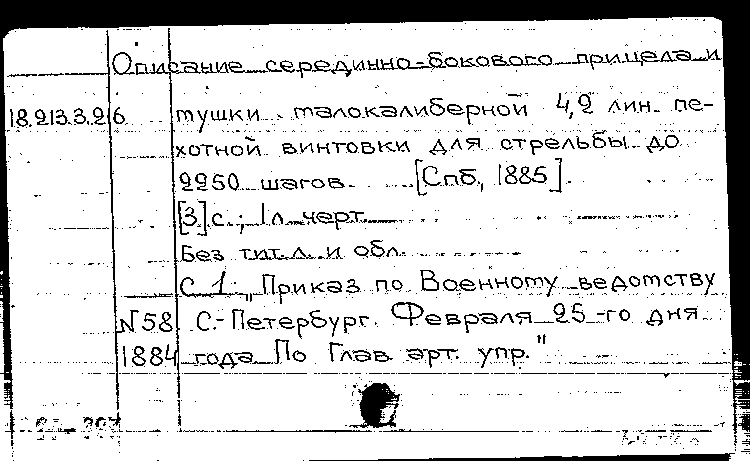 Описание серединно-бокового прицела и
18.213.3.26 мушки малокалиберной 4,2 лин. пе-
хотной винтовки для стрельбы до
2250 шагов. [Спб, 1885].
[3] с.; 1 л. черт.
Без тит. л. и обл.
С 1: „Приказ по Военному ведомству
N58 С.-Петербург. Февраля 25-го дня
1884 года По Глав арт. упр."